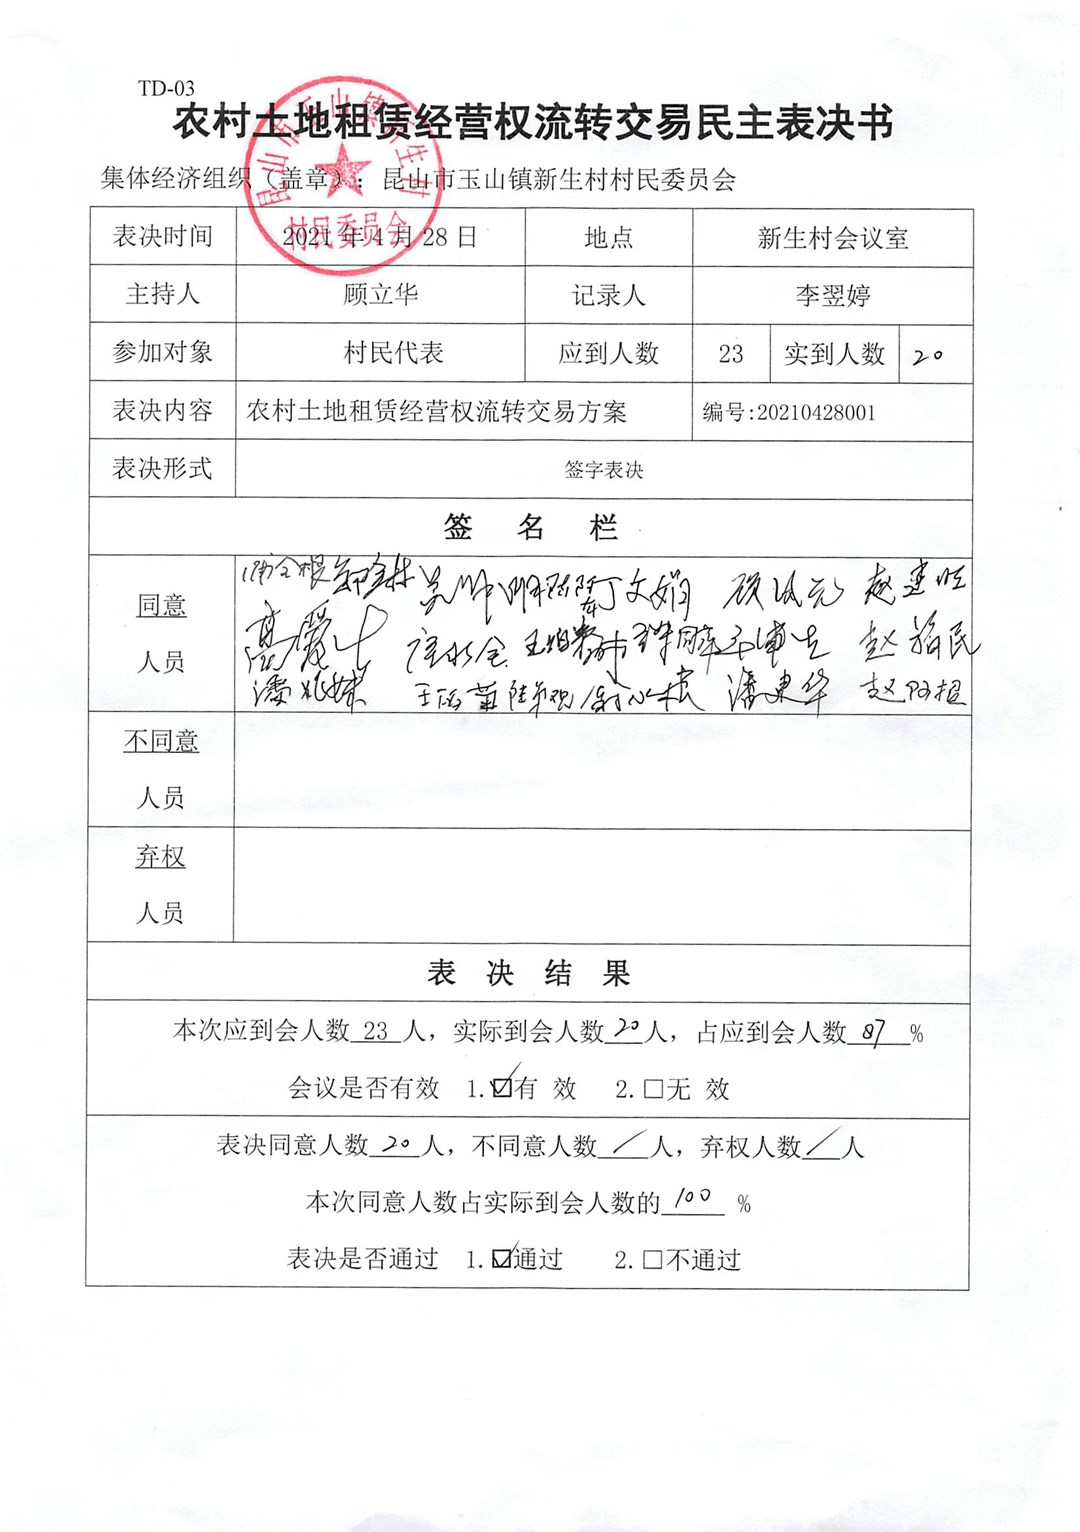 TD-03
农村土地租赁经营权流转交易民主表决书
集体经济组织（盖章）：昆山市玉山镇新生村村民委员会
昆山市玉山镇新生村
村民委员会
表决时间 2021年4月28日 地点 新生村会议室
主持人 顾立华 记录人 李翌婷
参加对象 村民代表 应到人数 23 实到人数 20
表决内容 农村土地租赁经营权流转交易方案 编号:20210428001
表决形式 签字表决
签 名 栏
同意
人员
丁文娟 赵建旺
赵福民
潘建华
不同意
人员
弃权
人员
表 决 结 果
本次应到会人数 23 人，实际到会人数 20 人，占应到会人数 87 %
会议是否有效 1.☑有 效 2.□无 效
表决同意人数 20 人，不同意人数 / 人，弃权人数 / 人
本次同意人数占实际到会人数的 100 %
表决是否通过 1.☑通过 2.□不通过